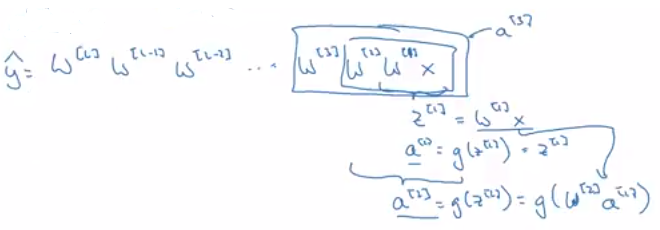 a^[3]
ŷ = W^[L] W^[L-1] W^[L-2] ... W^[3] W^[2] W^[1] x
z^[1] = W^[1] x
a^[1] = g(z^[1]) = z^[1]
a^[2] = g(z^[2]) = g(W^[2] a^[1])